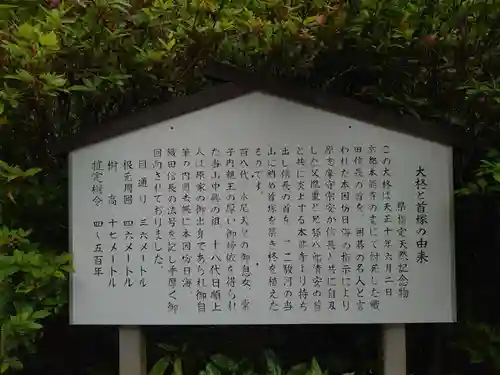 大柊と首塚の由来
県指定天然記念物
この大柊は天正十年六月二日
京都本能寺の変にて討死した織
田信長の首を、囲碁の名人と言
われた本因坊日海の指示により
原志摩守宗安が信長と共に自刃
した父胤重と兄孫八郎清安の首
と共に炎上する本能寺より持ち
出し信長の首を、ここ駿河の当
山に納め首塚を築き柊を植えた
るのです。
百八代 水尾天皇の御息女、常
子内親王の厚い御帰依を得られ
た当山中興の祖、十八代日順上
人は原家の御出身であられ御自
筆の内過去帳に本因坊日海、
織田信長の法号を記し手厚く御
回向されております。
目通り 三六メートル
根元周囲 四六メートル
樹高 十七メートル
推定樹令 四〜五百年